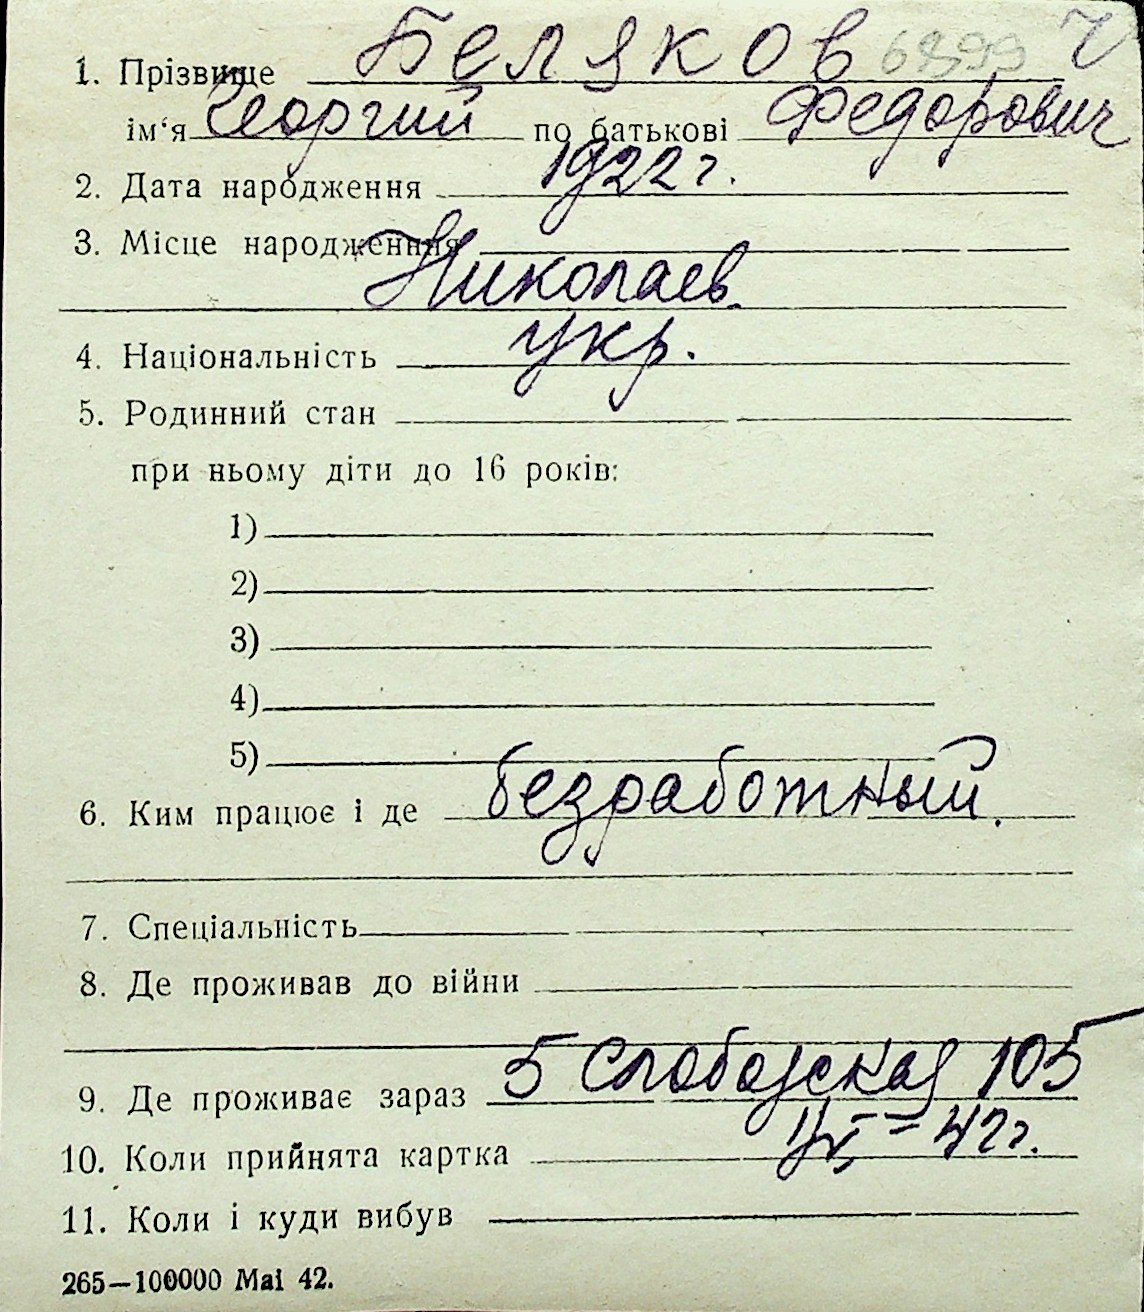 1. Прізвище Беляков 6899
ім'я Георгий по батькові Федорович
2. Дата народження 1922 г.
3. Місце народження
Николаев
4. Національність укр.
5. Родинний стан
при ньому діти до 16 років:
1)
2)
3)
4)
5)
6. Ким працює і де безработный.
7. Спеціальність
8. Де проживав до війни
9. Де проживає зараз 5 Слободская 105
10. Коли прийнята картка 42 г.
11. Коли і куди вибув
265—100000 Mai 42.